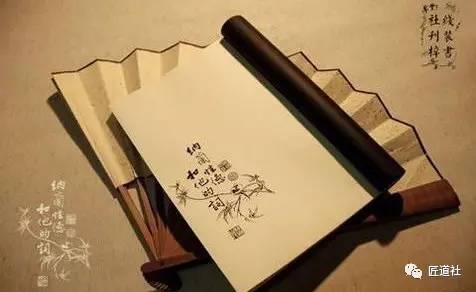 线装书
社刊梓
纳兰性德
和他的词
纳兰性德
和他的词
匠道社